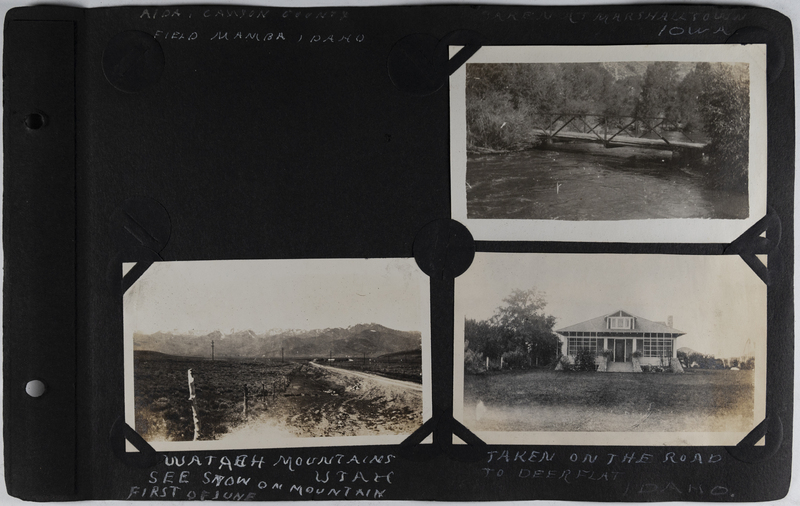 AIDA, CANYON COUNTY
FIELD NAMBA IDAHO
TAKEN AT MARSHALLTOWN
IOWA
WATAEH MOUNTAINS
UTAH
SEE SNOW ON MOUNTAIN
FIRST OF JUNE
TAKEN ON THE ROAD
TO DEERFLAT
IDAHO.